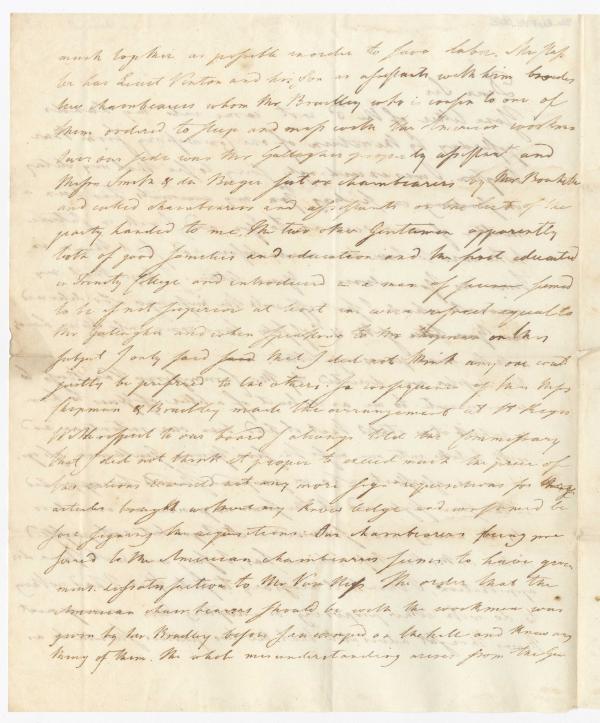 much together as possible in order to save labor. Mr Has
ler has Lieut Vinton and his Son as assistants with him besides
two chainbearers whom Mr Bradley who is cousin to one of
them ordered to sleep and mess with the American workmen
over our side was Mr Gallagher properly assistant and
Messrs Smith & de Berger put on chainbearers by Mr Bouchette
and called chainbearers and assistants on the list of the
party handed to me. The two other Gentlemen apparently
both of good families and education and the first educated
in Trinity College and introduced as a man of science seemed
to be if not superior at least in every respect equal to
Mr Gallagher and when speaking to Mr on this
subject I only said that I did not think any one could
justly be preferred to the others: in consequence of this Mess
Chipman & Bradley made the arrangement at St Regis
With respect to our board I always told the Commissary
that I did not think it proper to exceed much the price of
the rations not any more sign requisitions for
articles bought without my knowledge and be
fore signing the requisitions: Our chainbearers being pre
fered to the American chainbearers seems to have given
much dissatisfaction to Mr Van Ness. The order that the
American chainbearers should be with the workmen was
given by Mr. Bradley before I encamped on the hill and knew any
thing of them. The whole misunderstanding arises from the Ge